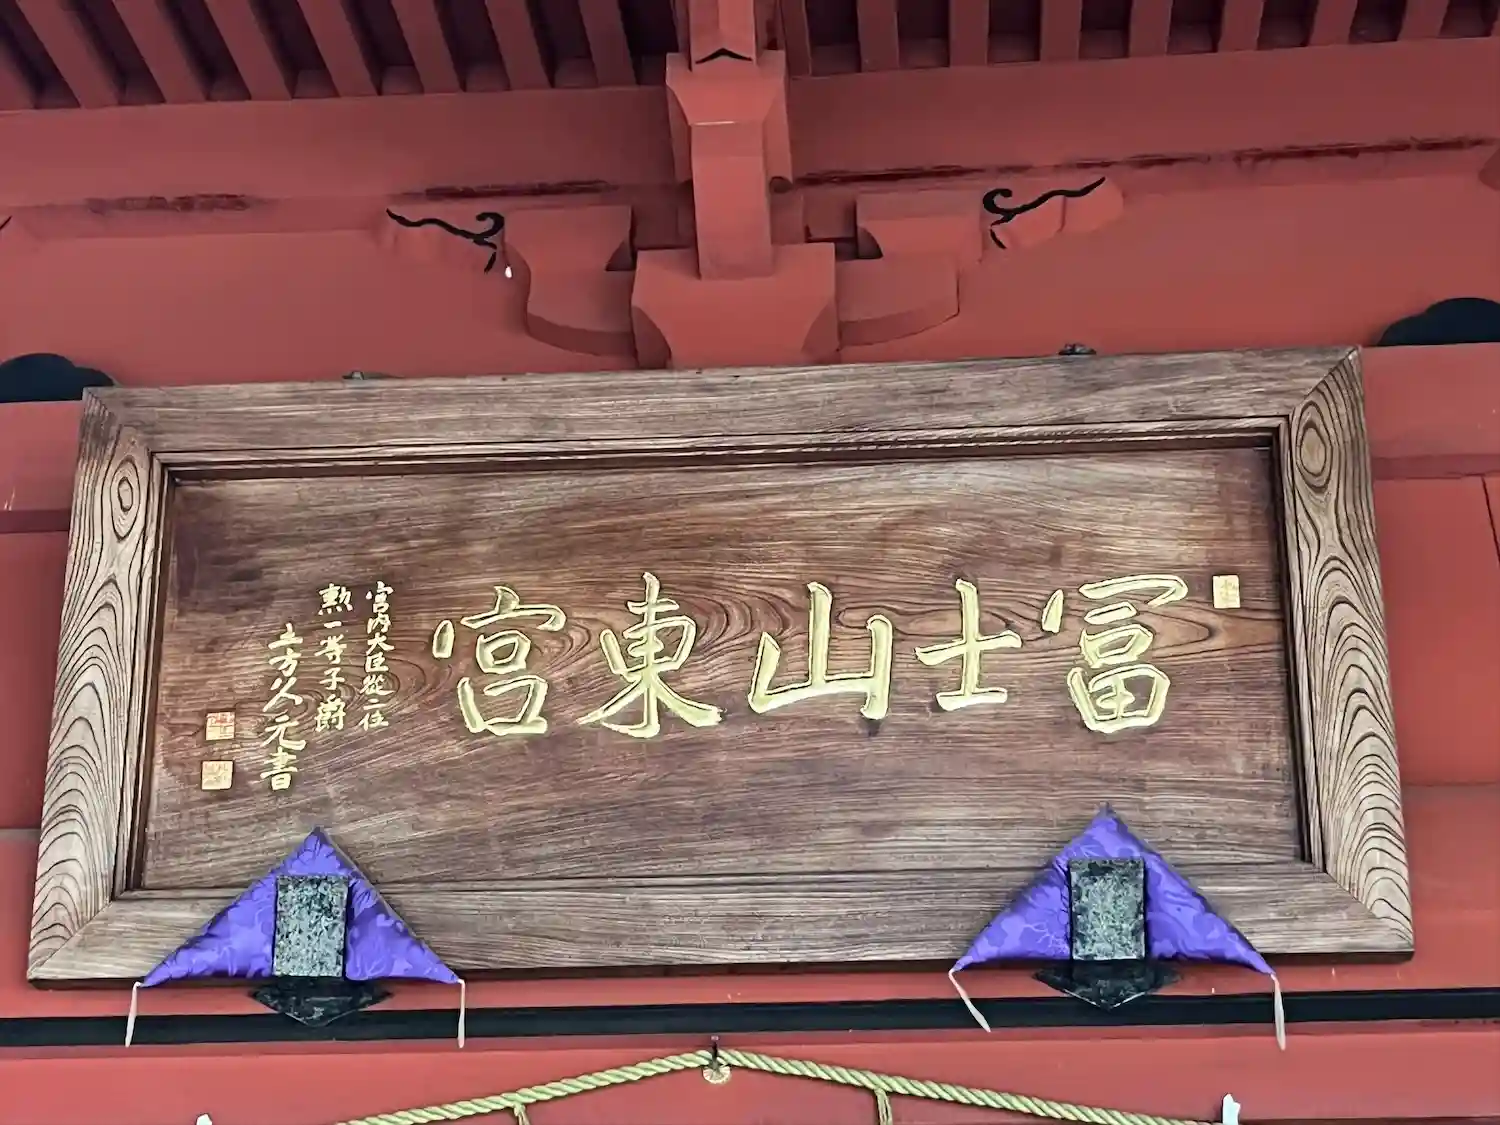 冨士山東宮
宮内大臣從二位
勲一等子爵
土方久元書